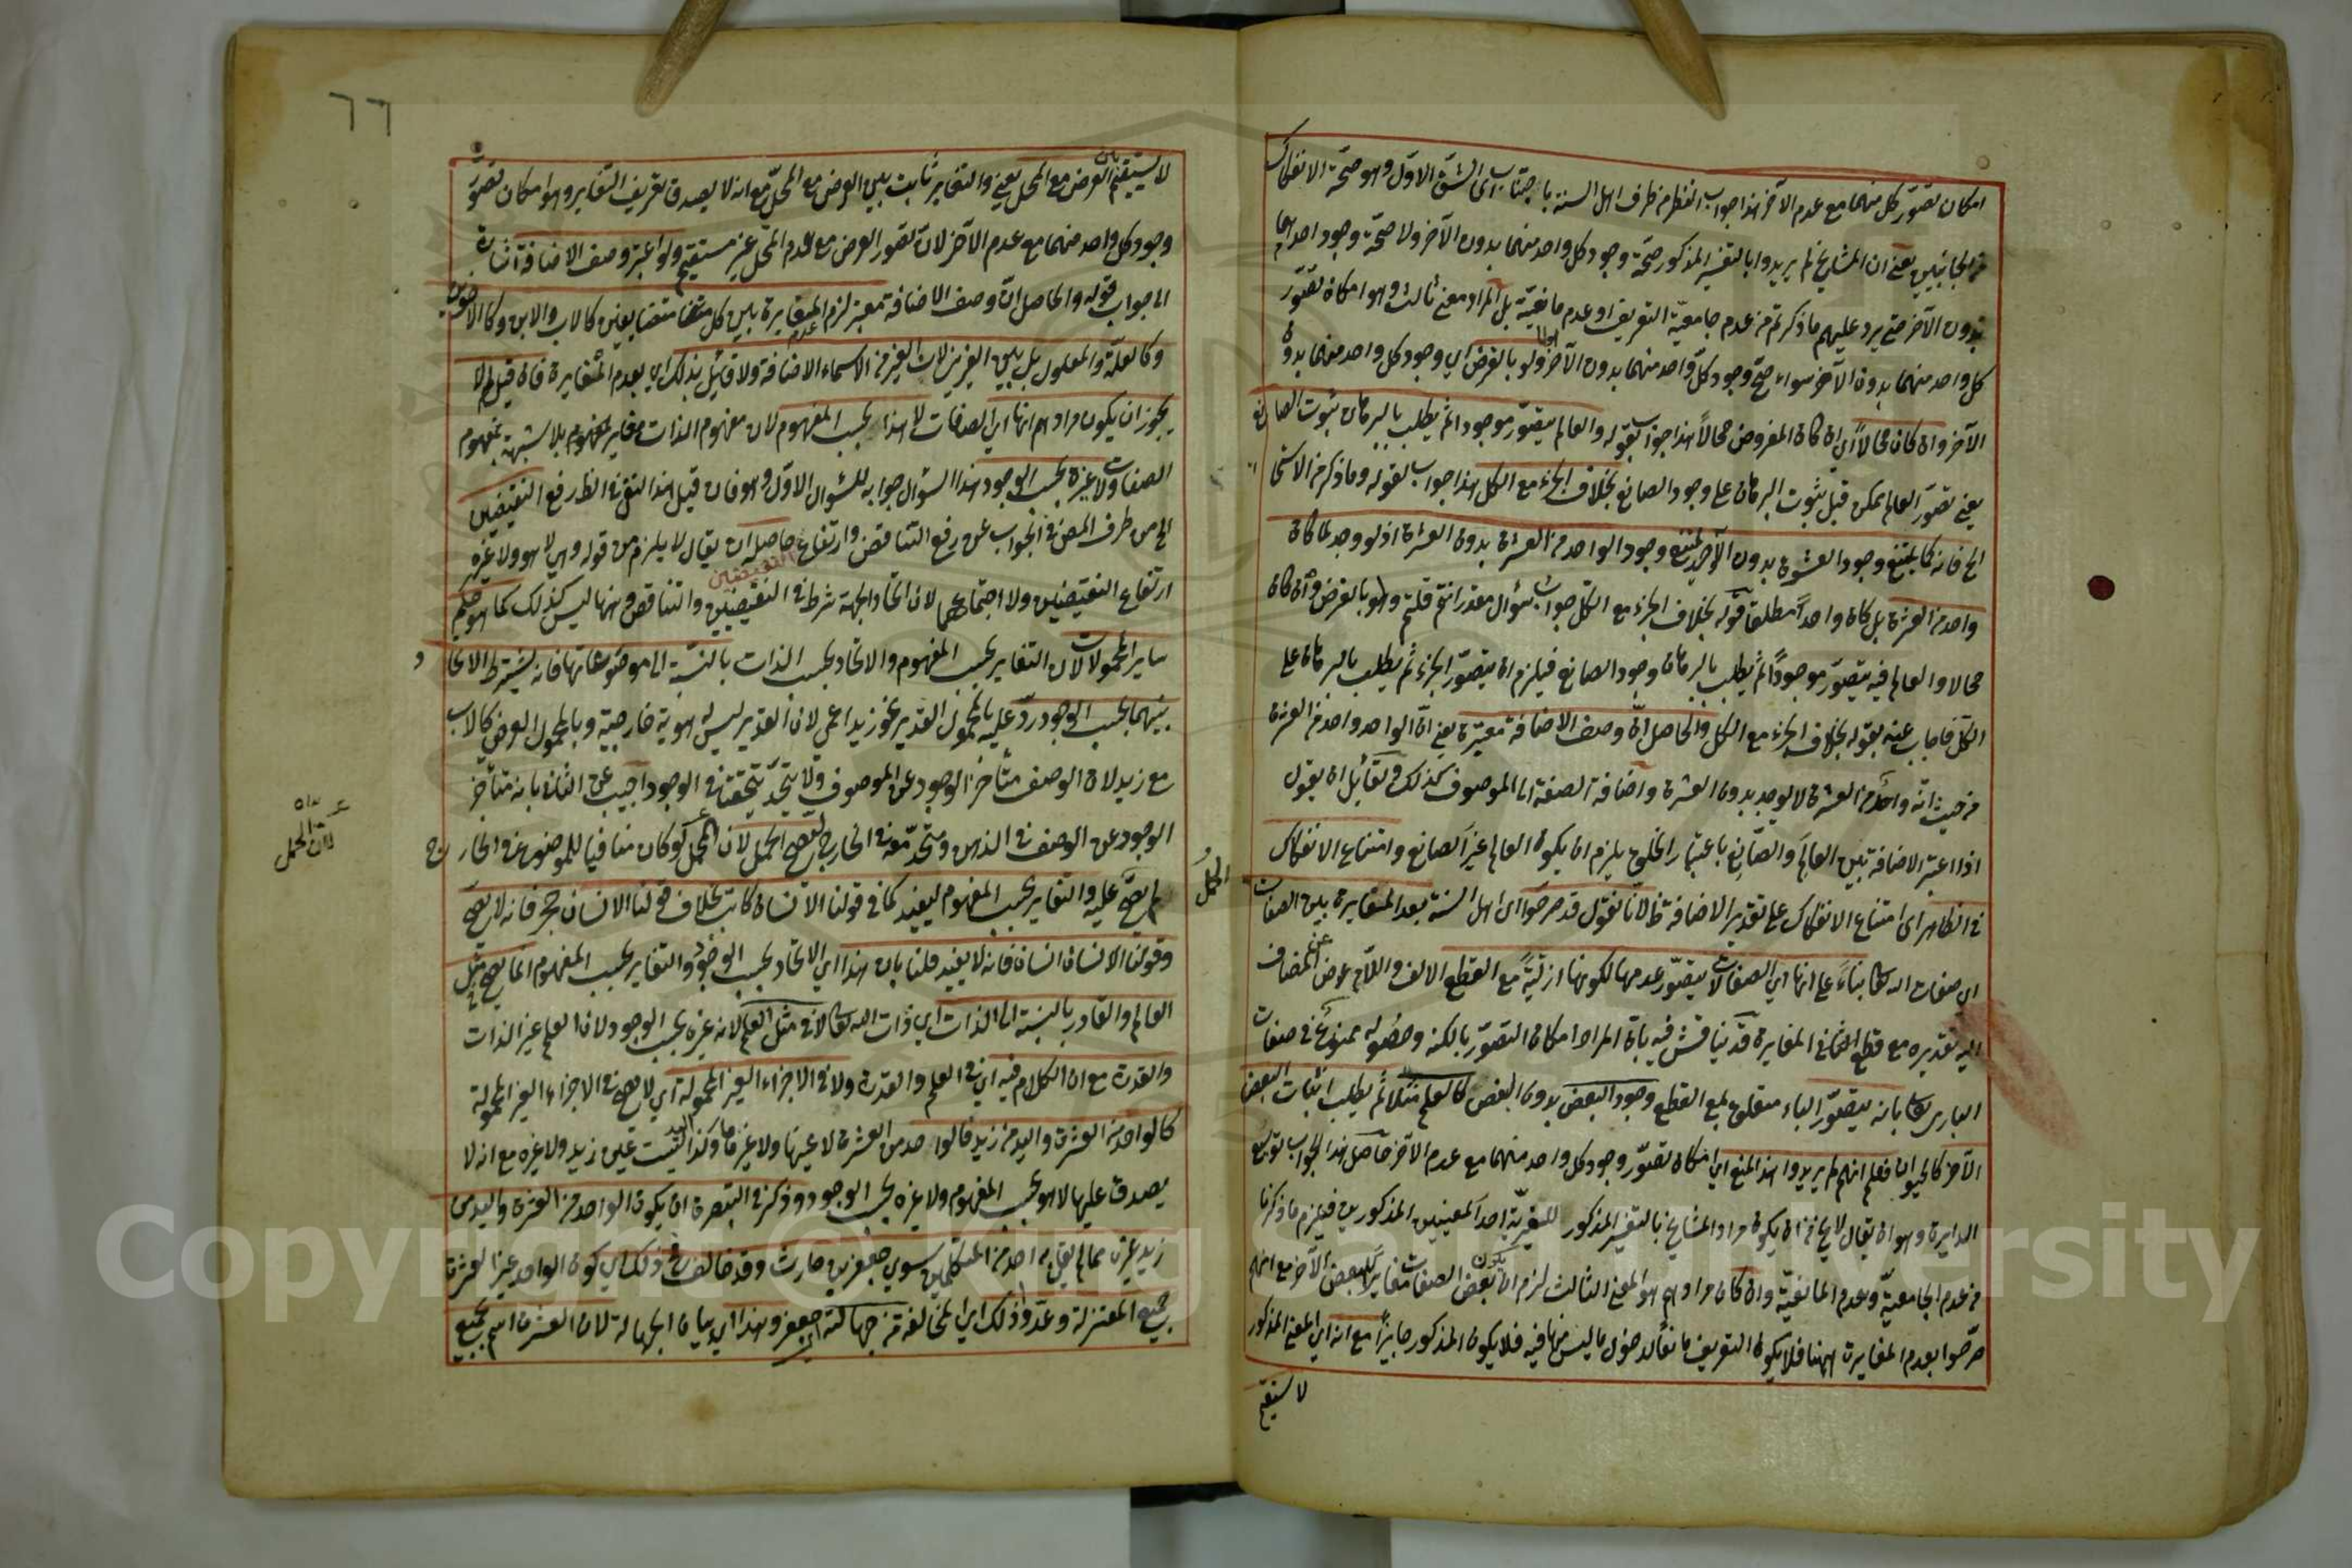 امكان تصور كل منهما مع عدم الآخر هذا جواب النظر من طرف اهل السنة باختيار الشق الاول وهو صحة الانفكاك
من الجانبين يعنى ان المشايخ لم يريدوا بالتفسير المذكور صحة وجود كل واحد منهما بدون الآخر ولا صحة وجود احدهما
بدون الآخر حتى يرد عليهم ما ذكرتم من عدم جامعية التعريف او عدم مانعيته بل المراد معنى ثالث وهو امكان تصور
كل واحد منهما بدون الآخر سواء صح وجود كل واحد منهما بدون الآخر اولا ولو بالفرض اي وجود كل واحد منهما بدون
الآخر وان كان محالا اي ان كان المفروض محالا هذا جواب بقوله والعالم يتصور موجودا ثم يطلب بالبرهان ثبوت الصانع
يعنى تصور العالم ممكن قبل ثبوت البرهان على وجود الصانع بخلاف الجزء مع الكل هذا جواب لقوله وما ذكر من الاستحا
الخ فانه كما يمتنع وجود العشرة بدون الواحد يمتنع وجود الواحد من العشرة بدون العشرة اذ لو وجد لما كان
واحدا من العشرة بل كان واحدا مطلقا قوله بخلاف الجزء مع الكل جواب سؤال مقدر انتم قلتم ولو بالفرض وان كان
محالا والعالم فيه يتصور موجودا ثم يطلب بالبرهان وجود الصانع فيلزم ان يتصور الجزء ثم يطلب بالبرهان على
الكل فاجاب عنه بقوله بخلاف الجزء مع الكل والحاصل ان وصف الاضافة معتبرة يعنى ان الواحد واحد من العشرة
من حيث انه واحد من العشرة لا يوجد بدون العشرة واضافة الصفة الى الموصوف كذلك لقائل ان يقول
اذا اعتبر الاضافة بين العالم والصانع باعتبار الخلق يلزم ان يكون العالم غير الصانع وامتناع الانفكاك
في الظاهر اى امتناع الانفكاك على تقدير الاضافة ظ لانا نقول قد صرحوا اى اهل السنة بعدم المغايرة بين الصفات
اي صفات الله تعالى بناء على انها اي الصفات لا يتصور عدمها لكونها ازلية مع القطع الالف واللام عوض عن المضاف
اليه تقديره مع قطع المغايرة قد يناقش فيه بان المراد امكان التصور بالكنه وحصوله ممنوع في صفات
البارى تعالى بانه يتصور متعلق بمع القطع وجود البعض بدون البعض كالعلم مثلا ثم يطلب اثبات البعض
الآخر كالحيوة فعلم انهم لم يريدوا هذا المعنى اي امكان تصور وجود كل واحد منهما مع عدم الآخر حاصل هذا الجواب توسيع
الدايرة وهو ان يقال لا يخ من ان يكون مراد المشايخ بالتفسير المذكور للغيرية احد المعنيين المذكورين فيلزم ما ذكرنا
من عدم الجامعية وعدم المانعية وان كان مرادهم هو المعنى الثالث لزم ان يكون بعض الصفات مغايرا للبعض الآخر مع انهم
صرحوا بعدم المغايرة ههنا فلا يكون التعريف مانعا لدخول ما ليس منها فيه فلا يكون المذكور جايزا مع انه اي المعنى المذكور
لا يستقيم
٦٦
لا يستقيم في العرض مع المحل يعنى والتغاير ثابت بين العرض مع المحل مع انه لا يصدق تعريف التغاير وهو امكان تصور
وجود كل واحد منهما مع عدم الآخر لان تصور العرض مع عدم المحل غير مستقيم ولو اعتبر وصف الاضافة اشارة
الى جواب قوله والحاصل ان وصف الاضافة معتبر لزم عدم المغايرة بين كل متضايفين كالاب والابن وكالاخوين
وكالعلة والمعلول بل بين الغيرين لان الغير من الاسماء الاضافة ولا قائل بذلك اي بعدم المغايرة فان قيل لم لا
يجوز ان يكون مرادهم انها اي الصفات لا هذا بحسب المفهوم لان مفهوم الذات مغاير لمفهوم بلا شبهة بمفهوم
الصفات ولا غيره بحسب الوجود هذا السؤال جوابه للسؤال الاول وهو فان قيل هذا النفى في الظ رفع النقيضين
الخ من طرف المص في الجواب عن رفع التناقض وارتفاع النقيضين حاصله ان يقال لا يلزم من قوله وهي لا هو ولا غيره
ارتفاع النقيضين ولا اجتماعهما لان اتحاد الجهة شرط في النقيضين والتناقض وههنا ليس كذلك كما هو حكم
ساير المحمولات لان التغاير بحسب المفهوم والاتحاد بحسب الذات بالنسبة الى موضوعاتها فانه يشترط الاتحا د
بينهما بحسب الوجود رد عليه بالمحمول العدمي نحو زيد اعمى لان العدم ليس له هوية خارجية وبالمحمول العرضى كالاب
مع زيد لان الوصف متأخر الوجود عن الموصوف ولا يتحد تحققه في الوجود اجيب عن الثانى بانه متأخر
الوجود عن الوصف في الذهن ومتحد معه في الخارج ليصح الحمل لان المحمل لو كان منافيا للموضوع في الخارج
لم يصح عليه والتغاير بحسب المفهوم ليفيد كما في قولنا الانسان كاتب بخلاف قولنا الانسان حجر فانه لا يصح
وقولنا الانسان انسان فانه لا يفيد قلنا بان هذا اي الاتحاد بحسب الوجود والتغاير بحسب المفهوم انما يصح في مثل
العالم والقادر بالنسبة الى الذات اي ذات الله تعالى لا في مثل العلم لانه غيره بحسب الوجود لان العلم غير الذات
والقدرة مع ان الكلام فيه اي في العلم والقدرة ولا في الاجزاء الغير المحمولة اي لا يصح في الاجزاء الغير المحمولة
كالواحد من العشرة واليد من زيد قالوا الواحد من العشرة لا عينها ولا غيرها وكذا اليد ليست عين زيد ولا غيره مع انه لا
يصدق عليها لا هو بحسب المفهوم ولا غيره بحسب الوجود وذكر في التبصرة ان يكون الواحد من العشرة واليد من
زيد غيره مما لم يقل به احد من المتكلمين سوى جعفر بن حارث وقد خالف في ذلك اي كون الواحد غير العشرة
جميع المعتزلة وعدوا ذلك اي المخالفة من جهالته اي جعفر وهذا اي بيان الجهالة لان العشرة اسم لجميع
الحمل
لان الحمل